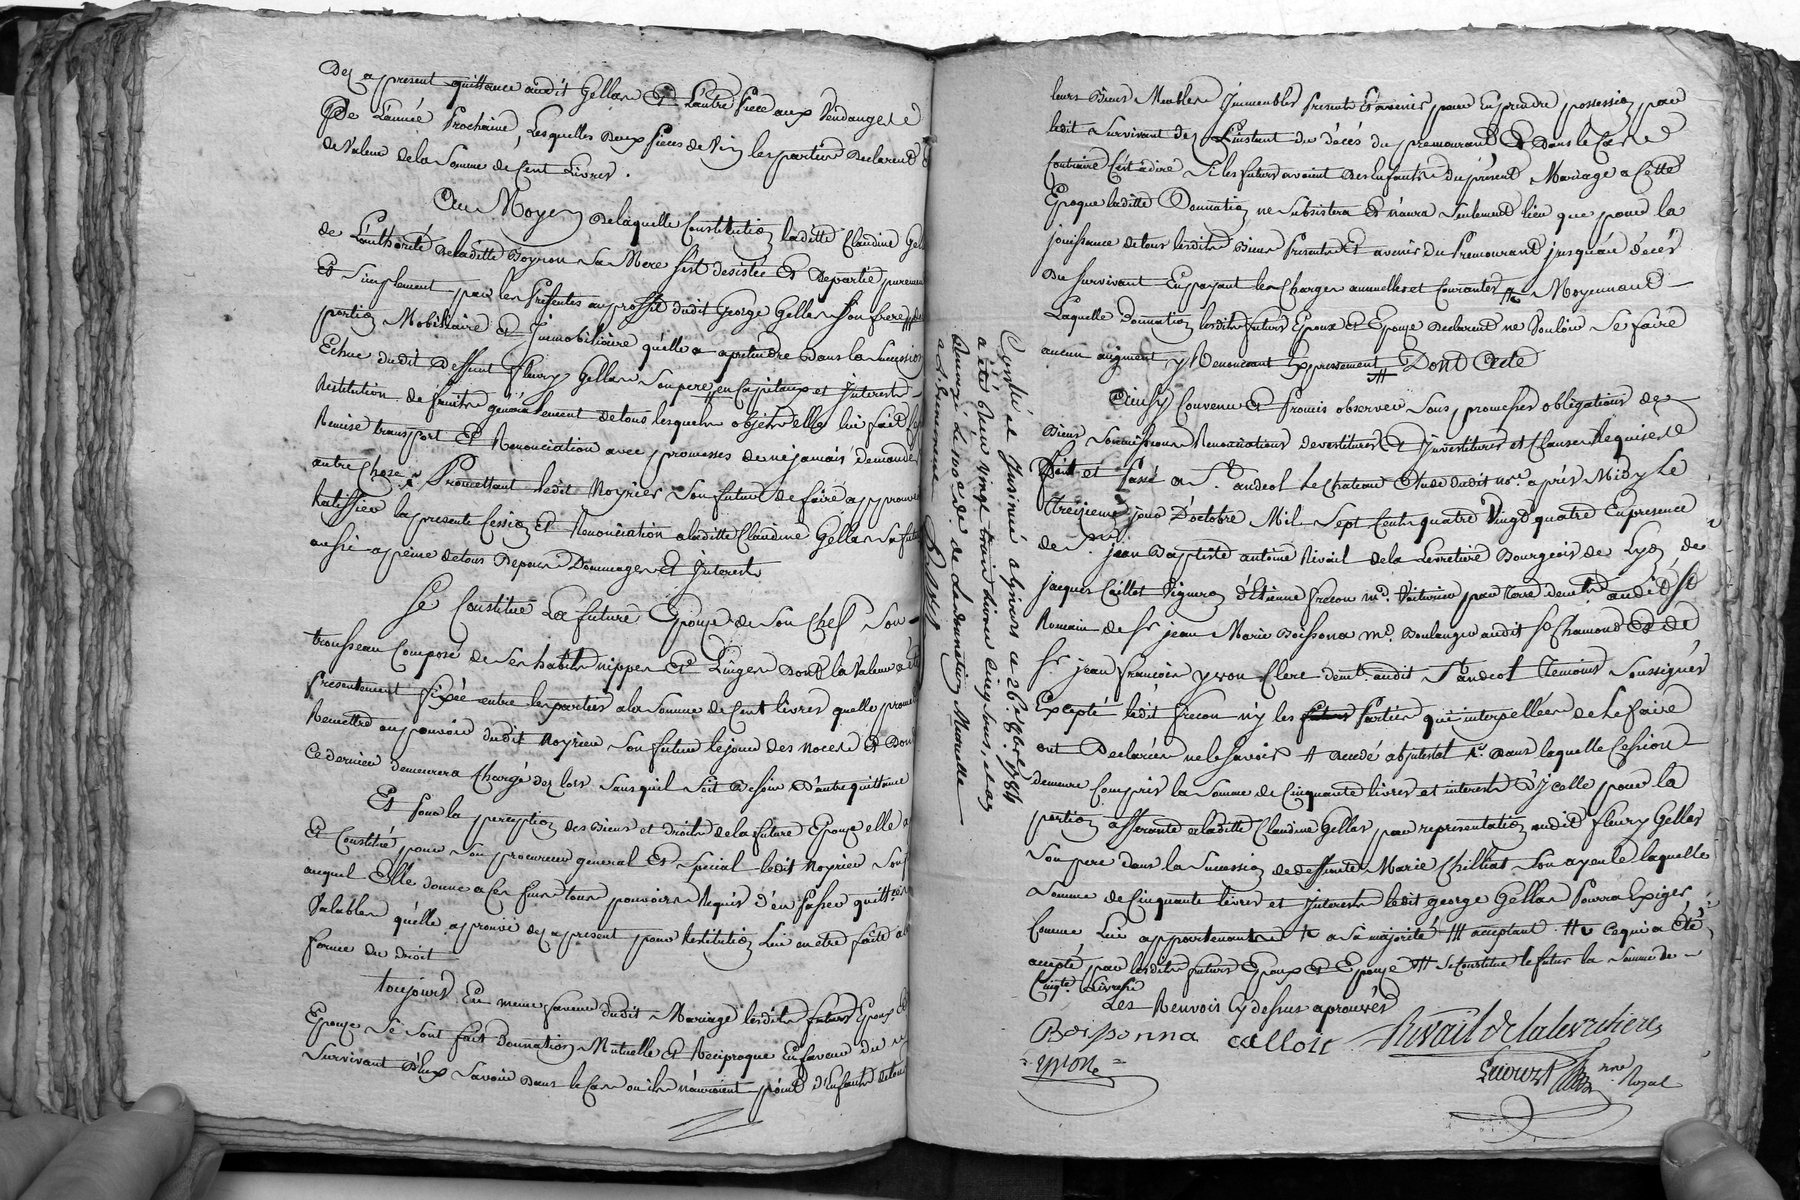 Dez apresent quittance audit Gellas Et L'autre Piece aux Vendanges
De L'année Prochaine, Lesquelles Deux Pieces de Vin les parties Declarent
de Valeur de la Somme de Cent Livres.
Au Moyen De laquelle Constitution laditte Claudine Gel
de L'authorité De laditte Boyron Sa Mere S'est desistée Et Departie purement
Et Simplement par les Présentes au proffit dudit George Gellas Son frere
portion Mobiliaire et Immobiliaire qu'elle a apretendre Dans la Succession
Echue dudit Deffunt Fleury Gellas Son pere en Capitaux et Interets
Restitution de fruits généralement de tous lesquels objets elle lui fait
Remise transport Et Renonciation avec promesses de ne jamais demander
autre Chose Promettant ledit Noyrier Son futur de faire approuver
Ratiffier la presente Cession Et Renonciation a laditte Claudine Gellas Sa future
aussi a peine de tous Depens Dommages Et Interets
Se Constitue La future Epouze de Son Chef Son
trousseau Composé de Ses habits nippes Et Linges Dont la Valeur a été
Presentement fixée entre les parties a la Somme de Cent livres quelle promet
Remettre au pouvoir dudit Noyrier Son futur le jour des Noces Et Dont
Ce dernier demeurera Chargé dez lors Sans quil Soit Besoin D'autre quittance
Et Pour la perception des Biens et droits de la future Epouze elle a
Et Constitué pour Son procureur general Et Special ledit Noyrier Son f
auquel Elle donne a Ces fins tous pouvoirs Requis d'en Passer quittces
Valables qu'elle approuve dez apresent pour Restitution Lui en etre faite a la
forme du Droit
toujours En meme faveur dudit Mariage lesdits futurs Epoux Et
Epouze Se Sont fait Donnation Mutuelle Et Reciproque En faveur du
Survivant D'Eux Savoir Dans le Cas ou ils n'auroient point d'Enfants de tous
Controllé et Insinué a Givors ce 26e 8bre 1784
a été Reçu vingt trois Livres cinq Sous, et a
Renvoyé le 100e de. de la donnation Mutuelle
leurs Biens Meubles Immeubles Presents Et avenir pour En prendre possession par
ledit Survivant dez L'instant du décés du premourant Et Dans le Cas
Contraire C'est adire Si les futurs avoient Des Enfants du présent Mariage a Cette
Epoque laditte Donnation ne Subsistera Et n'aura Seulement lieu que pour la
jouissance de tous lesdits Biens Presents Et avenir du Premourant jusqu'au décés
Du Survivant En payant les Charges annuelles et Courantes Moyennant
Laquelle Donnation lesdits futurs Epoux Et Epouze Declarent ne Vouloir Se faire
aucun augment y Renoncant Expressement Dont Acte
Ainsy Convenu Et Promis observer Sous promesses obligations de
Biens Soumissions Renonciations Devestitures Et Investitures et Clauses Requises
Fait et Passé a St. andeol le Chateau Etude dudit nore. aprés Midy Le
treizieme jour D'octobre Mil Sept Cents quatre Vingt quatre En presence
de Sr. jean Baptiste antoine Rivail de la Levretiere Bourgeois de Lyon, de
jacques Caillot Vigneron d'Etienne frecon md. Voiturier par terre demts audit St
Romain de Sr. jean Marie Boissona md. Boulanger audit St Chamond Et de
Sr. jean Francois yvon Clerc demt. audit St andeol temoins Soussignés
Excepté ledit frecon n'y les Parties qui interpellées de Le faire
ont Declarées ne le Savoir Decedé abintestat Dans laquelle Cession
demeure Compris la Somme de Cinquante livres et interets d'ycelle pour la
portion afferante a laditte Claudine Gellas par representation dudit Fleury Gellas
Son pere dans la Succession de deffunte Marie Chilliat Son ayeule laquelle
Somme de Cinquante livres et Interets ledit george Gellas Pourra Exiger
Comme Lui appartenante a Sa majorité acceptant Ce qui a Eté
accepté par lesdits futurs Epoux Et Epouze Se Constitue le futur la Somme de
Cinqte. Livres
Les Renvois Cy dessus aprouvés
Boissonna callot Rivail de la levretiere
yvon
nre Royal